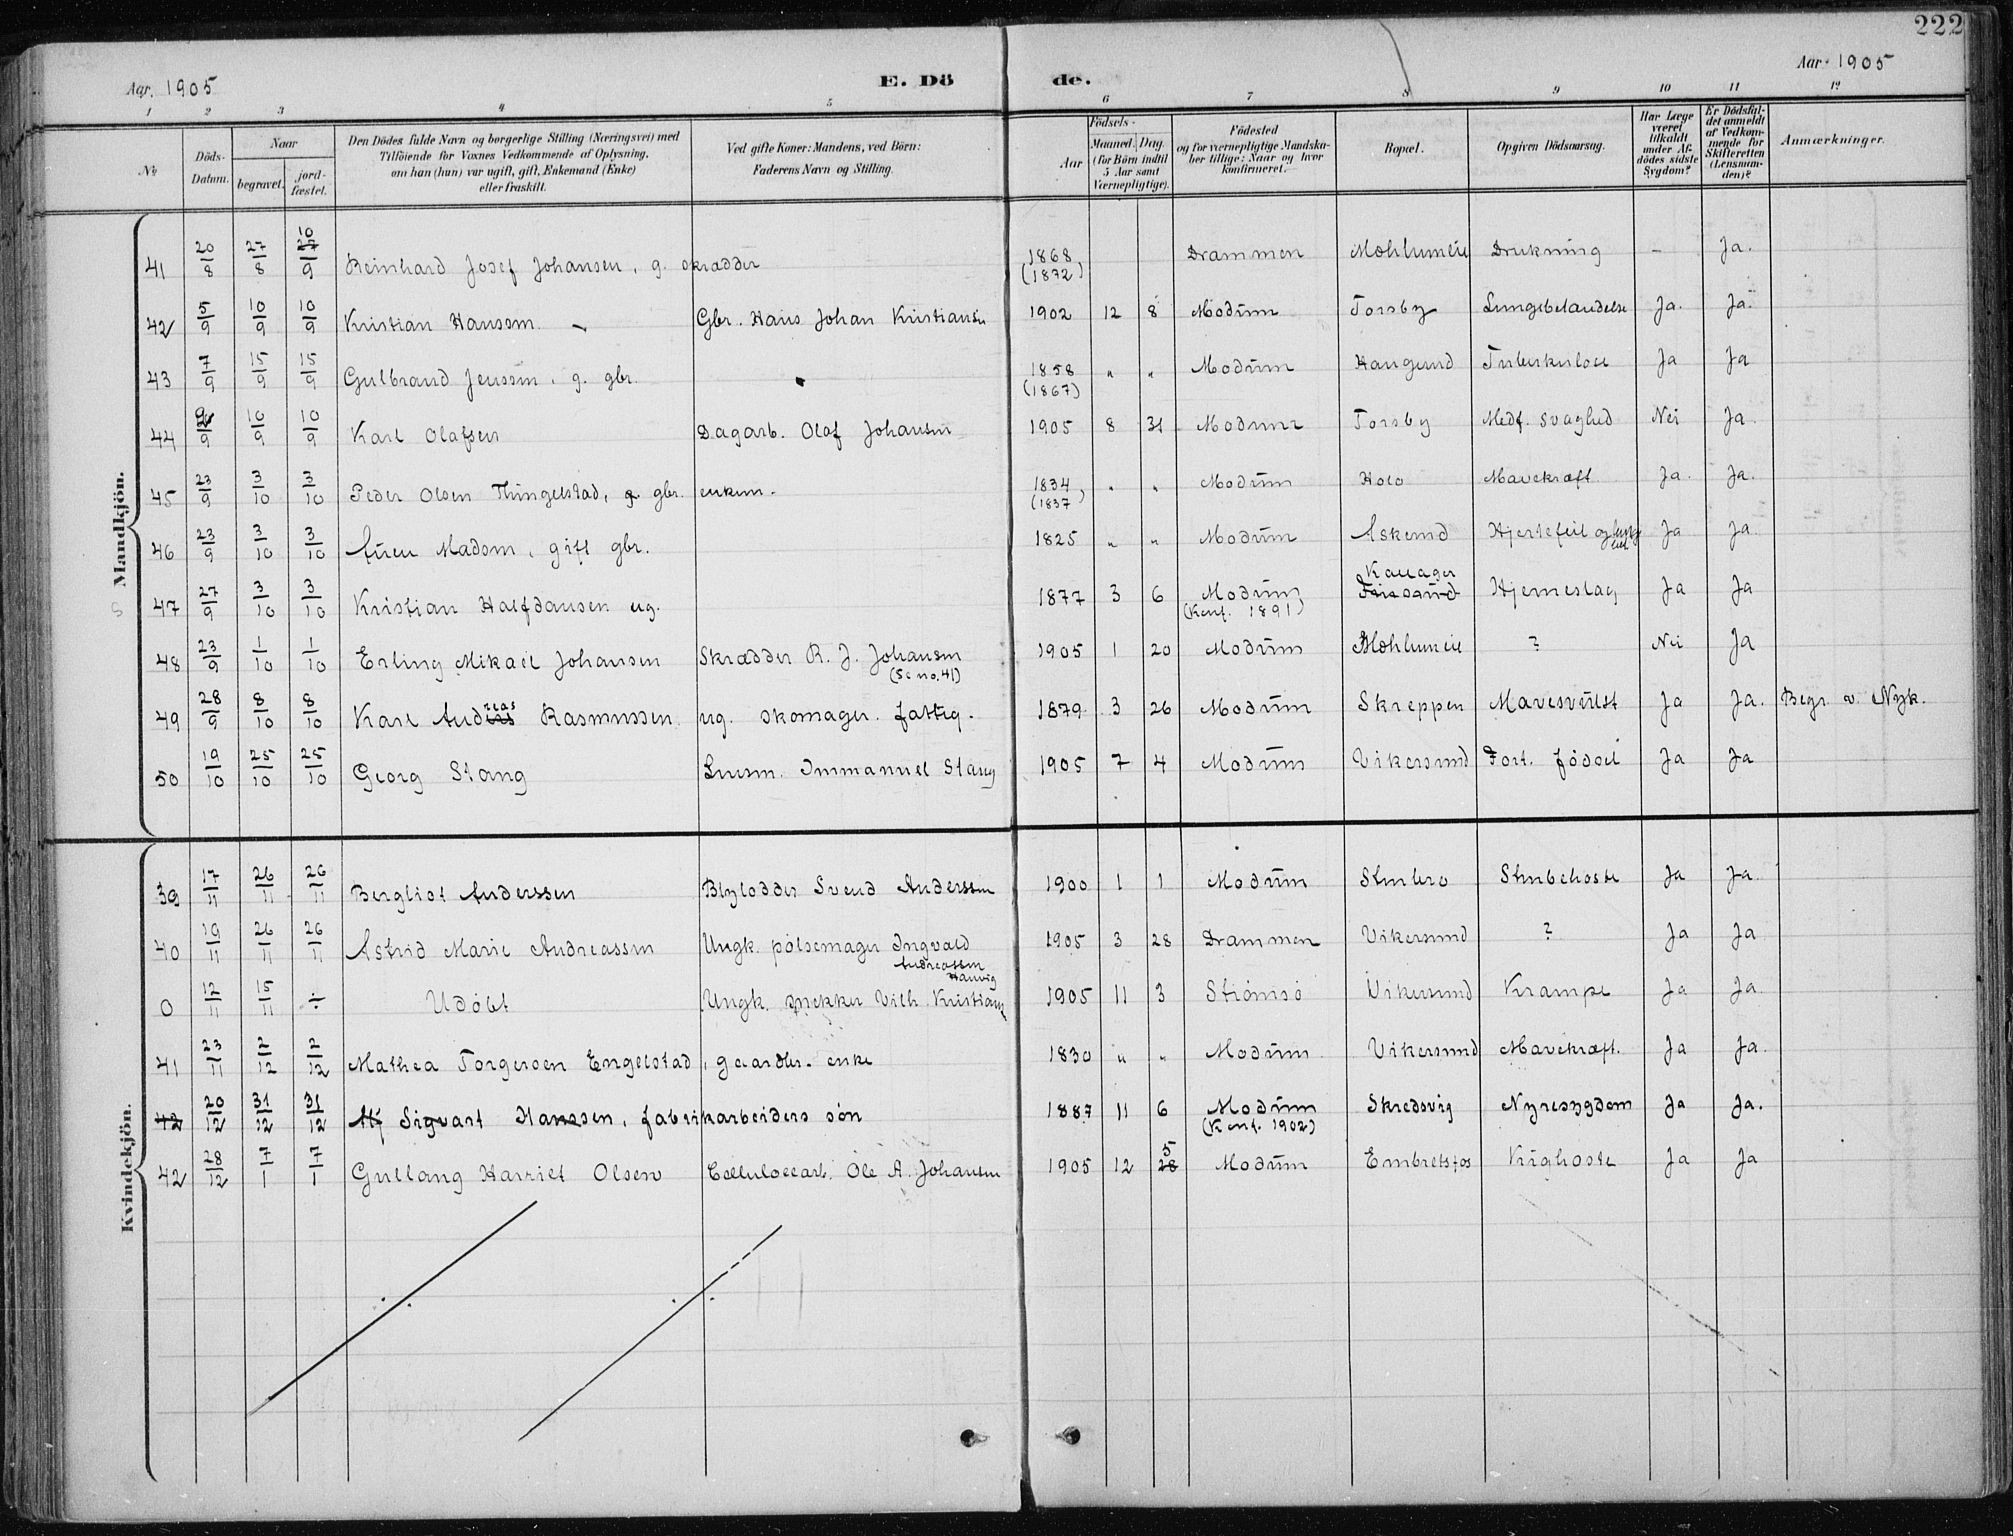 222
Aar. 1905 E. Dö de. Aar. 1905
1 2 3 4 5 6 7 8 9 10 11 12
No
Döds-Datum.
Naar
begravet. jord-fæstet.
Den Dödes fulde Navn og borgerlige Stilling (Næringsvei) med
Tilföiende for Voxnes Vedkommende af Oplysning,
om han (hun) var ugift, gift, Enkemand (Enke)
eller fraskilt.
Ved gifte Koner: Mandens, ved Börn:
Faderens Navn og Stilling.
Födsels-
Aar Maaned. Dag.
(for Börn indtil
5 Aar samt
Værnepligtige).
Födested
og for værnepligtige Mandska-
ber tillige: Naar og hvor
konfirmeret.
Bopæl.
Opgiven Dödsaarsag.
Har Læge
været
tilkaldt
under Af-
dödes sidste
Sygdom?
Er Dödsfal-
det anmeldt
af Vedkom-
mende for
Skifteretten
(Lensman-
den)?
Anmærkninger.
Mandkjön.
41 20/8 27/8 10/9 Reinhard Josef Johansen, g. skrædder 1868 (1872) Drammen Mæhlumeie Drukning - Ja.
42 5/9 10/9 10/9 Kristian Hanssen Gbr. Hans Johan Kristiansen 1902 12 8 Modum Torsby Lungebetændelse Ja. Ja.
43 7/9 15/9 15/9 Gulbrand Jenssen, g. gbr. 1858 (1867) " " Modum Haugerud Tuberkulose Ja Ja
44 9/9 10/9 10/9 Karl Olafsen Dagarb. Olaf Johansen 1905 8 31 Modum Torsby Medf. svaghed Nei Ja.
45 23/9 3/10 3/10 Peder Olsen Thingelstad, g. gbr. enkem. 1834 (1837) " " Modum Holo Mavekræft Ja. Ja.
46 23/9 3/10 3/10 Madsen, gift gbr. 1825 " " Modum Askerud Hjertefeil og Ja Ja.
47 27/9 3/10 3/10 Kristian Halfdansen ug. 1877 3 6 Modum (Konf. 1891) Kallager Hjerneslag Ja Ja
48 23/9 1/10 1/10 Erling Mikael Johansen Skrædder R. J. Johansen (Se no. 41) 1905 1 20 Modum Mæhlumeie ? Nei Ja
49 28/9 8/10 8/10 Karl Andreas Rasmussen ug. skomager. fattig. 1879 3 26 Modum Skreppen Mavesvulst Ja Ja. Begr. v. Nyk.
50 19/10 25/10 25/10 Georg Stang Immanuel Stang 1905 7 4 Modum Vikersund Fort. fødsel Ja Ja
Kvindekjön.
39 17/11 26/11 26/11 Bergliot Anderssen Blylodder Svend Anderssen 1900 1 1 Modum Stenbro Strubehoste Ja Ja.
40 19/11 26/11 26/11 Astrid Marie Andreassen Ungk. pølsemager Ingvald Andreassen 1905 3 28 Drammen Vikersund ? Ja Ja
0 12/11 15/11 ÷ Udøbt Ungk. snekker Vilh. Kristiansen Hauvig 1905 11 3 Strømsø Vikersund Krampe Ja Ja.
41 23/11 2/12 2/12 Mathea Torgersen Engelstad, gaardbr. enke 1830 " " Modum Vikersund Mavekræft. Ja Ja.
42 20/12 31/12 31/12 Alf Sigvart Hanssen, fabrikarbeiders søn 1887 11 6 Modum (Konf. 1902) Skredsvig Nyresygdom Ja Ja.
42 28/12 7/1 7/1 Gullaug Harriet Olsen Cellulosearb. Ole A. Johansen 1905 12 5 28 Modum Embretsfos Kighoste Ja Ja